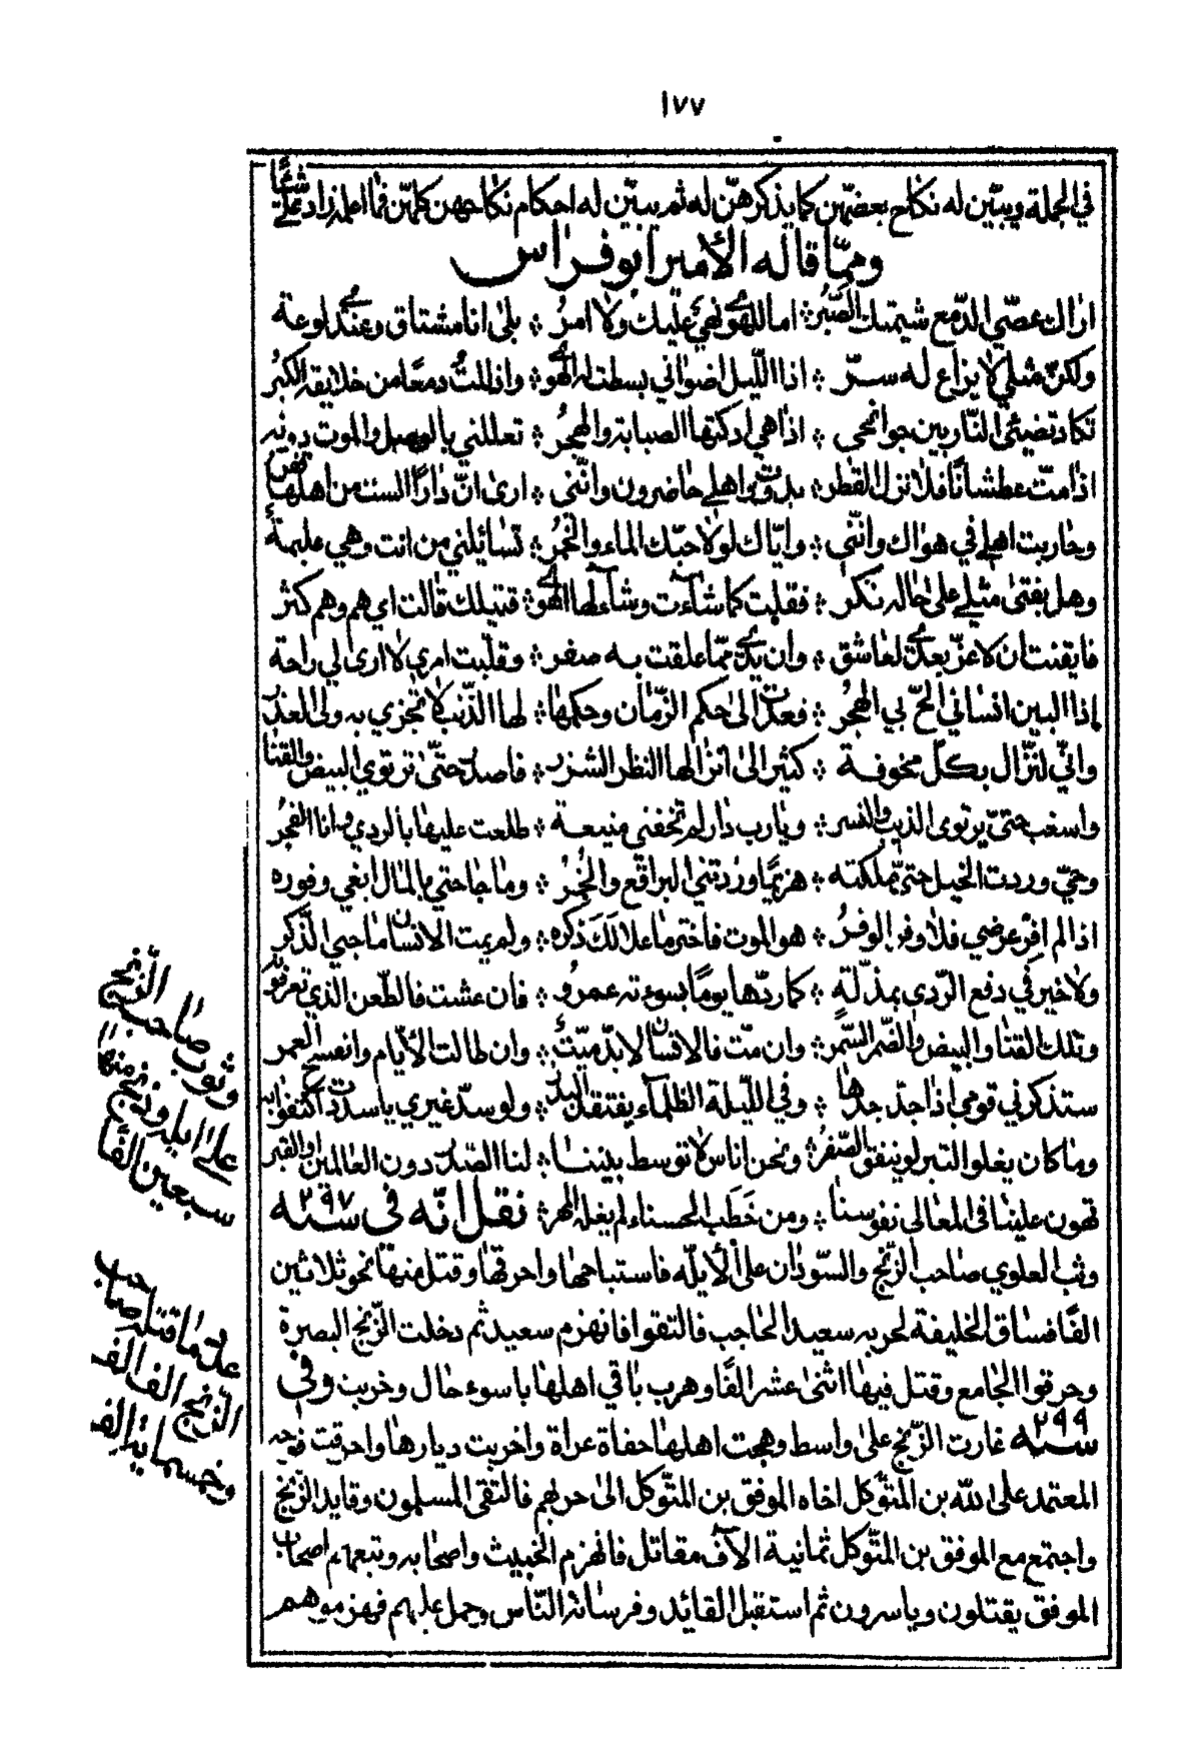 ١٧٧
في الجملة ويبيّن له نكاح بعضهن كما يذكر هنّ له ثم يبيّن له احكام نكاحهن كلهنّ فما اعلمه زاد علي شيئا
وممّا قاله الأمير ابو فراس
اراك عصّي الدّمع شيمتك الصّبرُ ⁘ اما للهوى نهيٌ عليك ولا امرُ ⁘ بلى انا مشتاق وعندي لوعة
ولكنّ مثلي لا يزاع له سرّ ⁘ اذا اللّيل اضواني بسطت له الهوى ⁘ واذللتُ دمعًا من خلايقه الكبرُ
تكاد تضيئ النّار بين جوانحي ⁘ اذا هي اذكتها الصبابة والهجرُ ⁘ تعللني بالوصل والموت دونه
اذا متّ عطشانًا فلا نزل القطر ⁘ بدوت واهلي حاضرون وانّني ⁘ ارى انّ دارًا لست من اهلها قفر
وحاربت اهلي في هواك وانّني ⁘ وايّاك لولا حبّك الماء والخمرُ ⁘ تسائلني من انت وهي عليمة
وهل بفتى مثلي على حاله نكر ⁘ فقلت كما شاءت وشاء لها الهوى ⁘ قتيلك قالت ايهم وهم كثر
فايقنت ان لا عزّ بعدي لعاشق ⁘ وان يدي ممّا علقت به صفر ⁘ وقلّبت امري لا ارى لي راحة
إذا البين انساني الحّ بي الهجرُ ⁘ فعدت الى حكم الزّمان وحكمها ⁘ لها الذّنب لا تجزي به ولى العذر
وانّي لنزّال بكلّ مخوفة ⁘ كثير الى نزالها النظر الشزر ⁘ فاصدى حتّى ترتوي البيض والقنا
واسغب حتىّ يرتوى الذيب والنسر ⁘ ويا رب دار لم تخفني منيعة ⁘ طلعت عليها بالردي وانا الفجرُ
وحيّ وردت الخيل حتىّ ملكته ⁘ هزيمًا وردتني البراقع والخُمرُ ⁘ وما حاجتي بالمال ابغي وفوره
اذا لم افِر عرضي فلا وفر الوفرُ ⁘ هو الموت فاختر ما علا لَكَ ذكره ⁘ ولم يمت الانسان ما حيي الذّكر
ولا خير في دفع الرّدى بمذلّةٍ ⁘ كما ردّها يومًا بسوءته عمرو ⁘ فان عشت فالطّعن الذي تعرفونه
وتلك القنا والبيض والضّمر السّمر ⁘ وان متّ فالانسان لا بدّ ميّت ⁘ وان طالت الأيّام وانفسح العمر
ستذكرني قومي اذا جدّ جدها ⁘ وفي اللّيلة الظلماء يفتقد البدر ⁘ ولو سدّ غيري ما سددت اكتفوا به
وما كان يغلو التبر لو ينفق الصّفرُ ⁘ ونحن اناس لا توسط بيننا ⁘ لنا الصّدر دون العالمين او القبر
تهون علينا في المعالي نفوسنا ⁘ ومن خَطَب الحسناء لم يغله المهر ⁘ نقل انّه في سنه ٢٩٧
وثب العلوي صاحب الزّنج والسّودان على الأيلّه فاستباحها واحرقها وقتل منها نحو ثلاثين
الفًا فساق الخليفة لحربه سعيد الحاجب فالتقوا فانهزم سعيد ثم دخلت الزّنج البصرة
وحرقوا الجامع وقتل فيها اثنى عشر الفًا وهرب باقي اهلها باسوء حال وخربت وفي
سنه ٢٩٩ غارت الزّنج على واسط وهجت اهلها حفاة عراة واخربت ديارها واحرقت فوجه
المعتمد على الله بن المتوّكل اخاه الموفق بن المتوّكل الى حربهم فالتقى المسلمون وقايد الزّنج
واجتمع مع الموفق بن المتوّكل ثمانية الآف مقاتل فانهزم الخبيث واصحابه وتبعهم اصحاب
الموفق يقتلون وياسرون ثم استقبل القائد وفرسانه النّاس وحمل عليهم فهزموهم
وثوب صاحب الزّنج
على ايله ونهج منها
سبعين الفًا
عدّة ما قتله صاحب
الزّنج الف الف
وخسماية الف